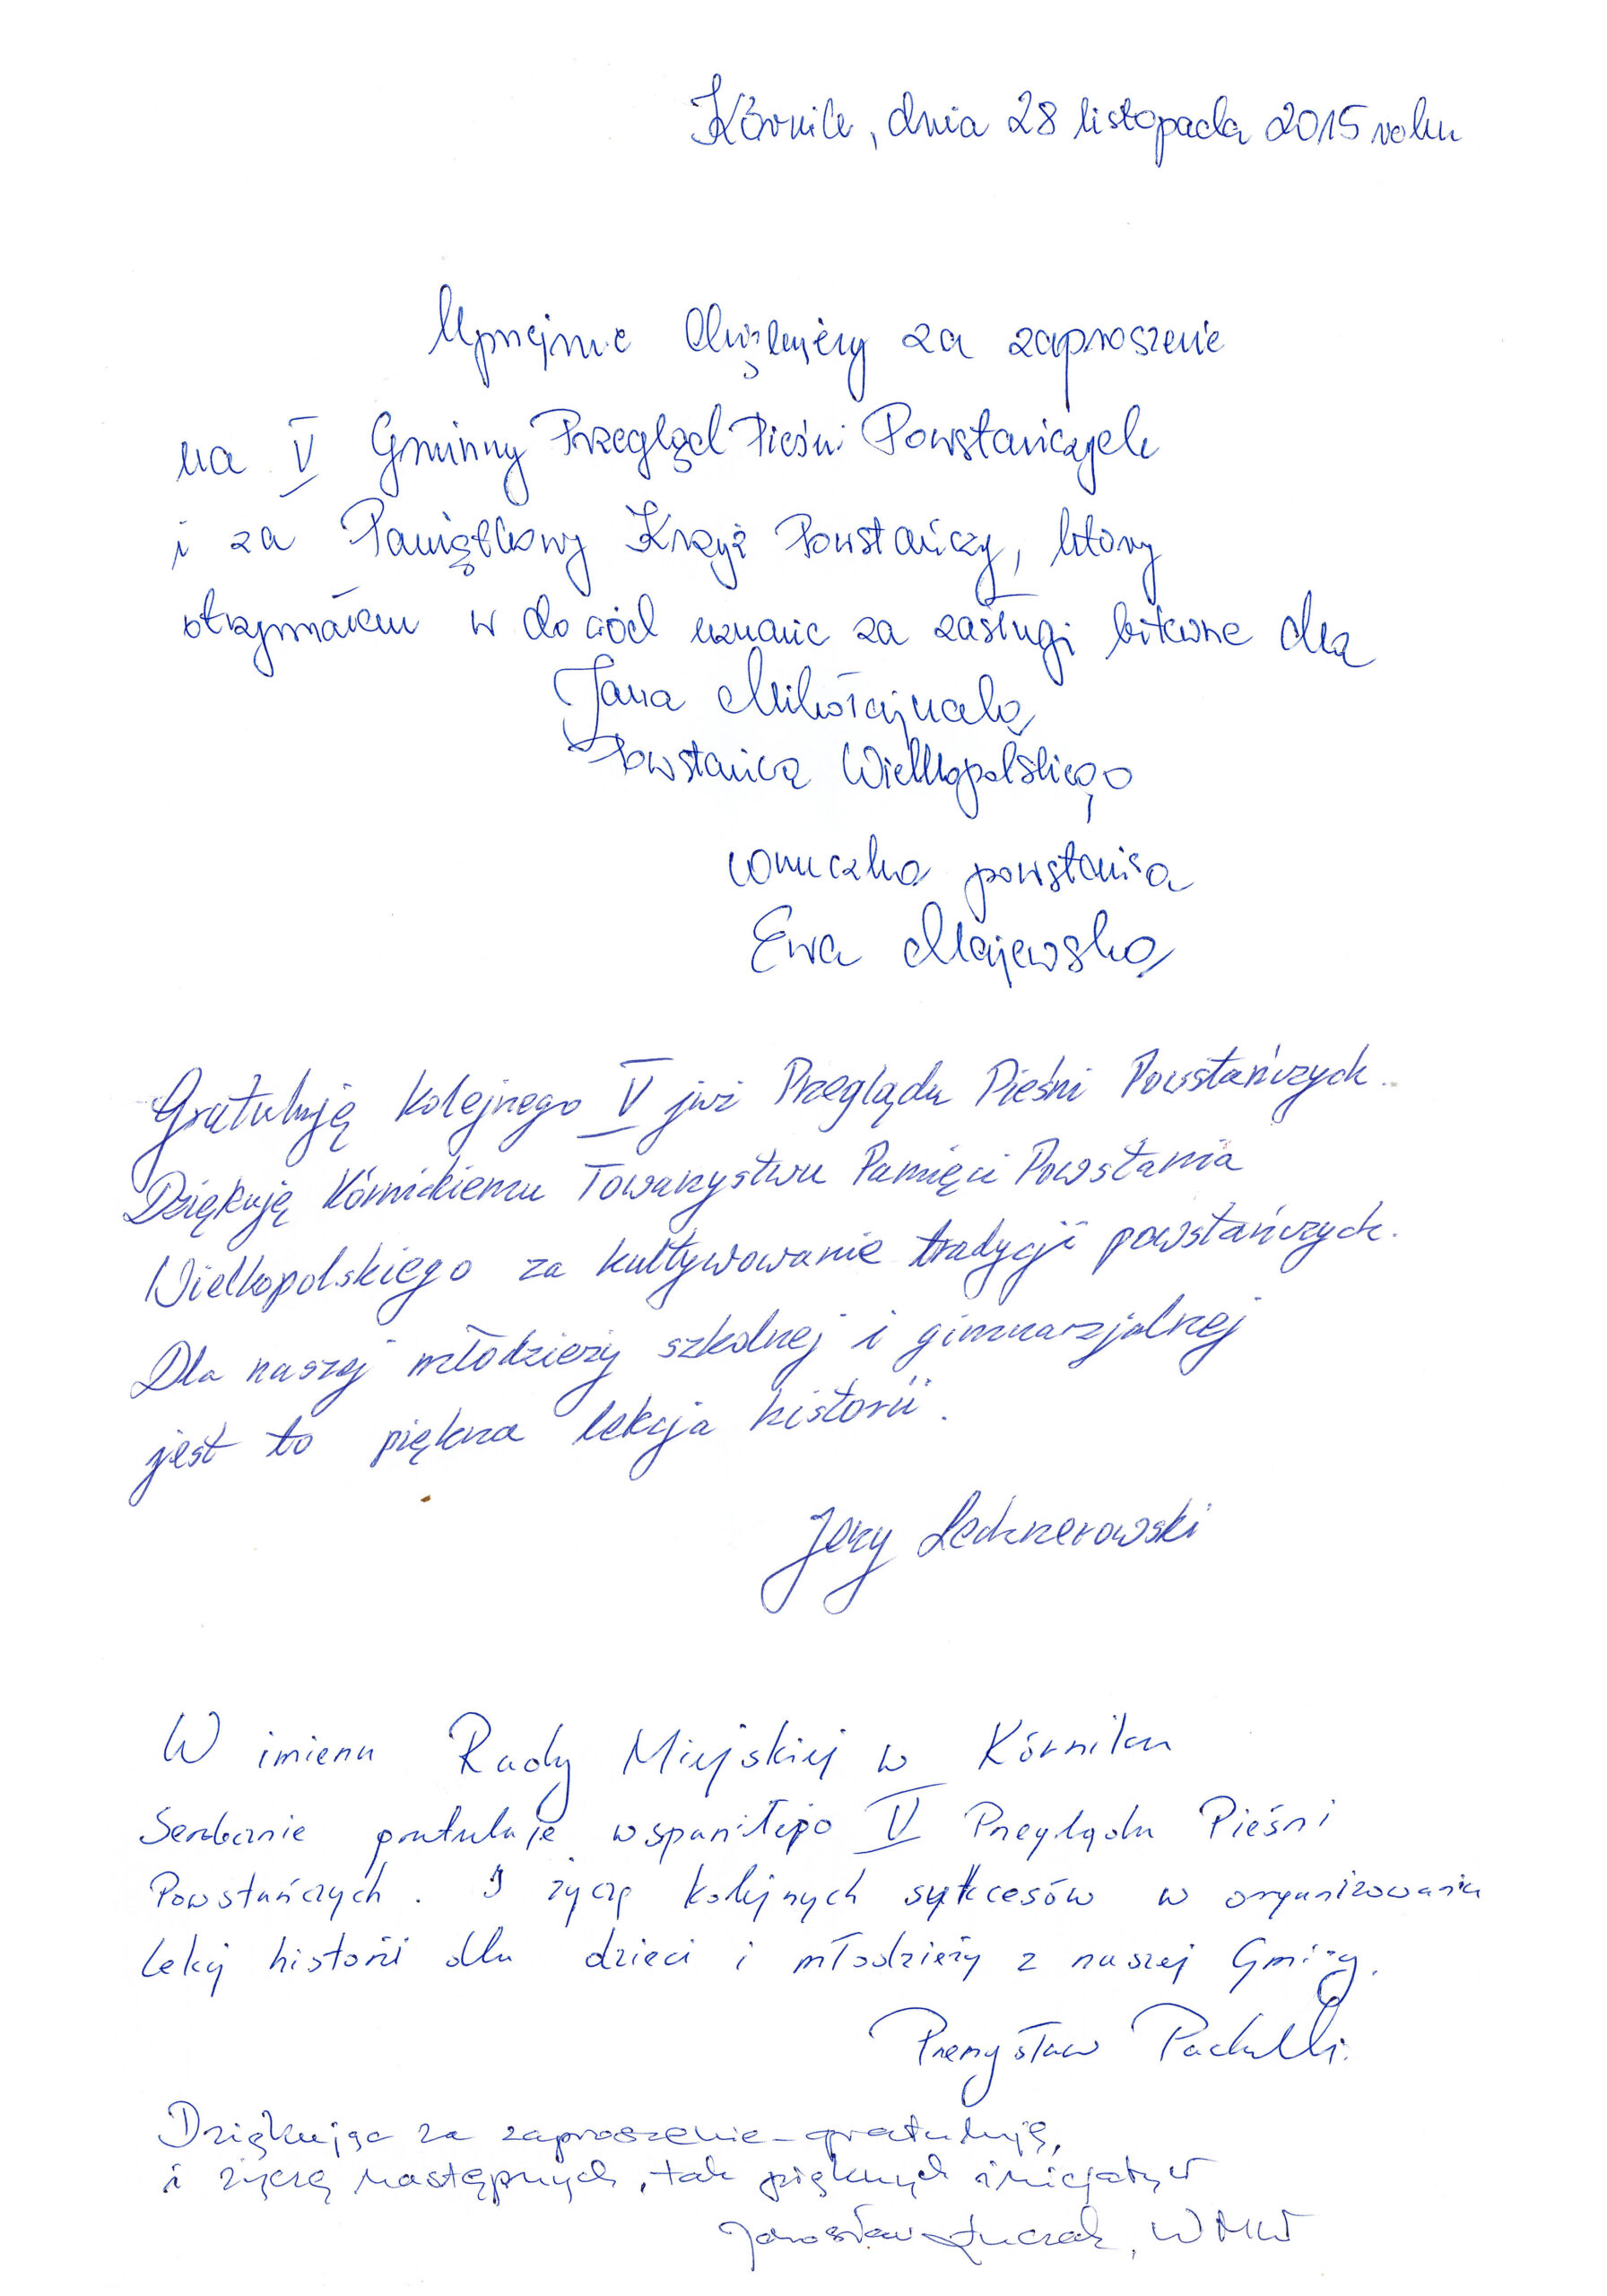 Kórnik, dnia 28 listopada 2015 roku
Uprzejmie dziękujemy za zaproszenie
na V Gminny Przegląd Pieśni Powstańczych
i za Pamiątkowy Krzyż Powstańczy, który
otrzymałem w dowód uznanie za zasługi bitewne dla
Jana Mikołajczaka
Powstańca Wielkopolskiego
wnuczka powstańca
Ewa Majewska
Gratuluję kolejnego V już Przeglądu Pieśni Powstańczych.
Dziękuję Kórnickiemu Towarzystwu Pamięci Powstania
Wielkopolskiego za kultywowanie tradycji powstańczych.
Dla naszej młodzieży szkolnej i gimnazjalnej
jest to piękna lekcja historii.
Jerzy Lechnerowski
W imieniu Rady Miejskiej w Kórniku
Serdecznie gratuluję wspaniłego V Przeglądu Pieśni
Powstańczych. I życzę kolejnych sukcesów w organizowaniu
lekcji historii dla dzieci i młodzieży z naszej Gminy.
Przemysław Pacholski.
Dziękując za zaproszenie - gratuluję,
i życzę następnych, tak pięknych inicjatyw
Jarosław Łuczak, WMW